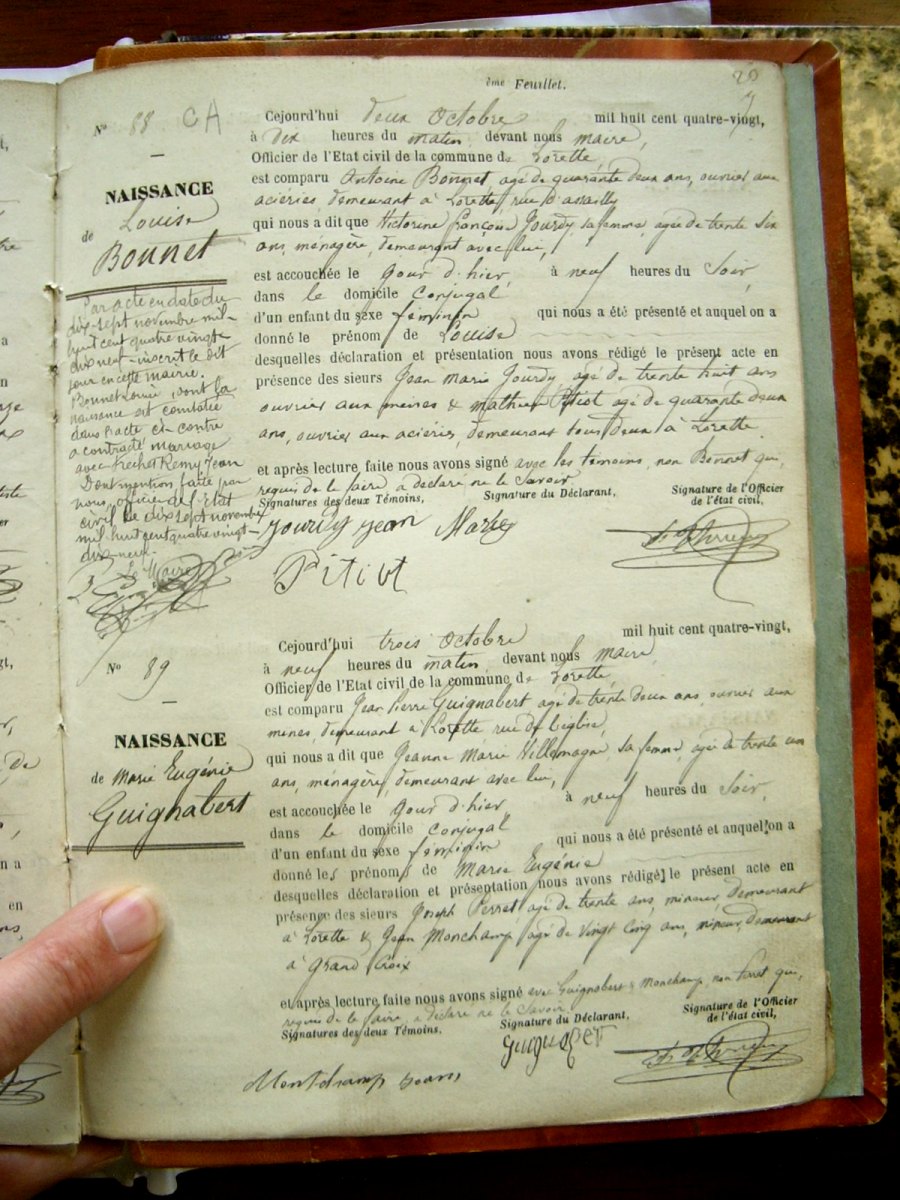 ème Feuillet.
20
7
N° 88 CA
NAISSANCE
de Louise
Bonnet
Par acte en date du
dix-sept novembre mil-
huit cent quatre vingt-
dix neuf inscrit le dit
jour en cette mairie.
Bonnet Louise dont la
naissance est constatée
dans l'acte ci-contre
a contracté mariage
avec Frechet Remy Jean
Dont mention faite par
nous, officier de l'Etat
civil le dix sept novembre
mil huit cent quatre vingt-
dix-neuf.
Le Maire
Cejourd'hui deux Octobre mil huit cent quatre-vingt,
à dix heures du matin, devant nous maire,
Officier de l'Etat civil de la commune de Lorette,
est comparu Antoine Bonnet, agé de quarante deux ans, ouvrier aux
aciéries, demeurant à Lorette, rue d'assailly
qui nous a dit que Victorine Françoise Jourdy, sa femme, agée de trente six
ans, ménagère, demeurant avec lui,
est accouchée le jour d'hier, à neuf heures du Soir,
dans le domicile Conjugal
d'un enfant du sexe féminin qui nous a été présenté et auquel on a
donné le prénom de Louise
desquelles déclaration et présentation nous avons rédigé le présent acte en
présence des sieurs Jean Marie Jourdy, agé de trente huit ans
ouvrier aux mines & mathieu Pitiot agé de quarante deux
ans, ouvrier aux aciéries, demeurant tous deux à Lorette
et après lecture, faite nous avons signé avec les témoins, non Bonnet qui,
requis de le faire, a déclaré ne le Savoir.
Signatures des deux Témoins, Signature du Déclarant, Signature de l'Officier
de l'état civil,
Jourdy jean Marie
Pitiot
N° 89
NAISSANCE
de Marie Eugénie
Guignabert
Cejourd'hui trois Octobre mil huit cent quatre-vingt,
à neuf heures du matin, devant nous maire,
Officier de l'Etat civil de la commune de Lorette,
est comparu Jean Pierre Guignabert agé de trente deux ans, ouvrier aux
mines, demeurant à Lorette rue de l'eglise,
qui nous a dit que Jeanne Marie Villemagne, sa femme, agée de trente un
ans, ménagère, demeurant avec lui,
est accouchée le jour d'hier à neuf heures du Soir,
dans le domicile Conjugal
d'un enfant du sexe féminin qui nous a été présenté et auquel on a
donné les prénoms de Marie Eugénie
desquelles déclaration et présentation nous avons rédigé le présent acte en
présence des sieurs Joseph Perret agé de trente ans, mineur, demeurant
à Lorette & Jean Monchamp agé de vingt cinq ans, mineur, demeurant
à Grand Croix
et après lecture, faite nous avons signé avec Guignabert & Monchamp, non Perret qui,
requis de le faire, a déclaré ne le Savoir.
Signatures des deux Témoins. Signature du Déclarant, Signature de l'Officier
de l'état civil,
Montchamp Jean